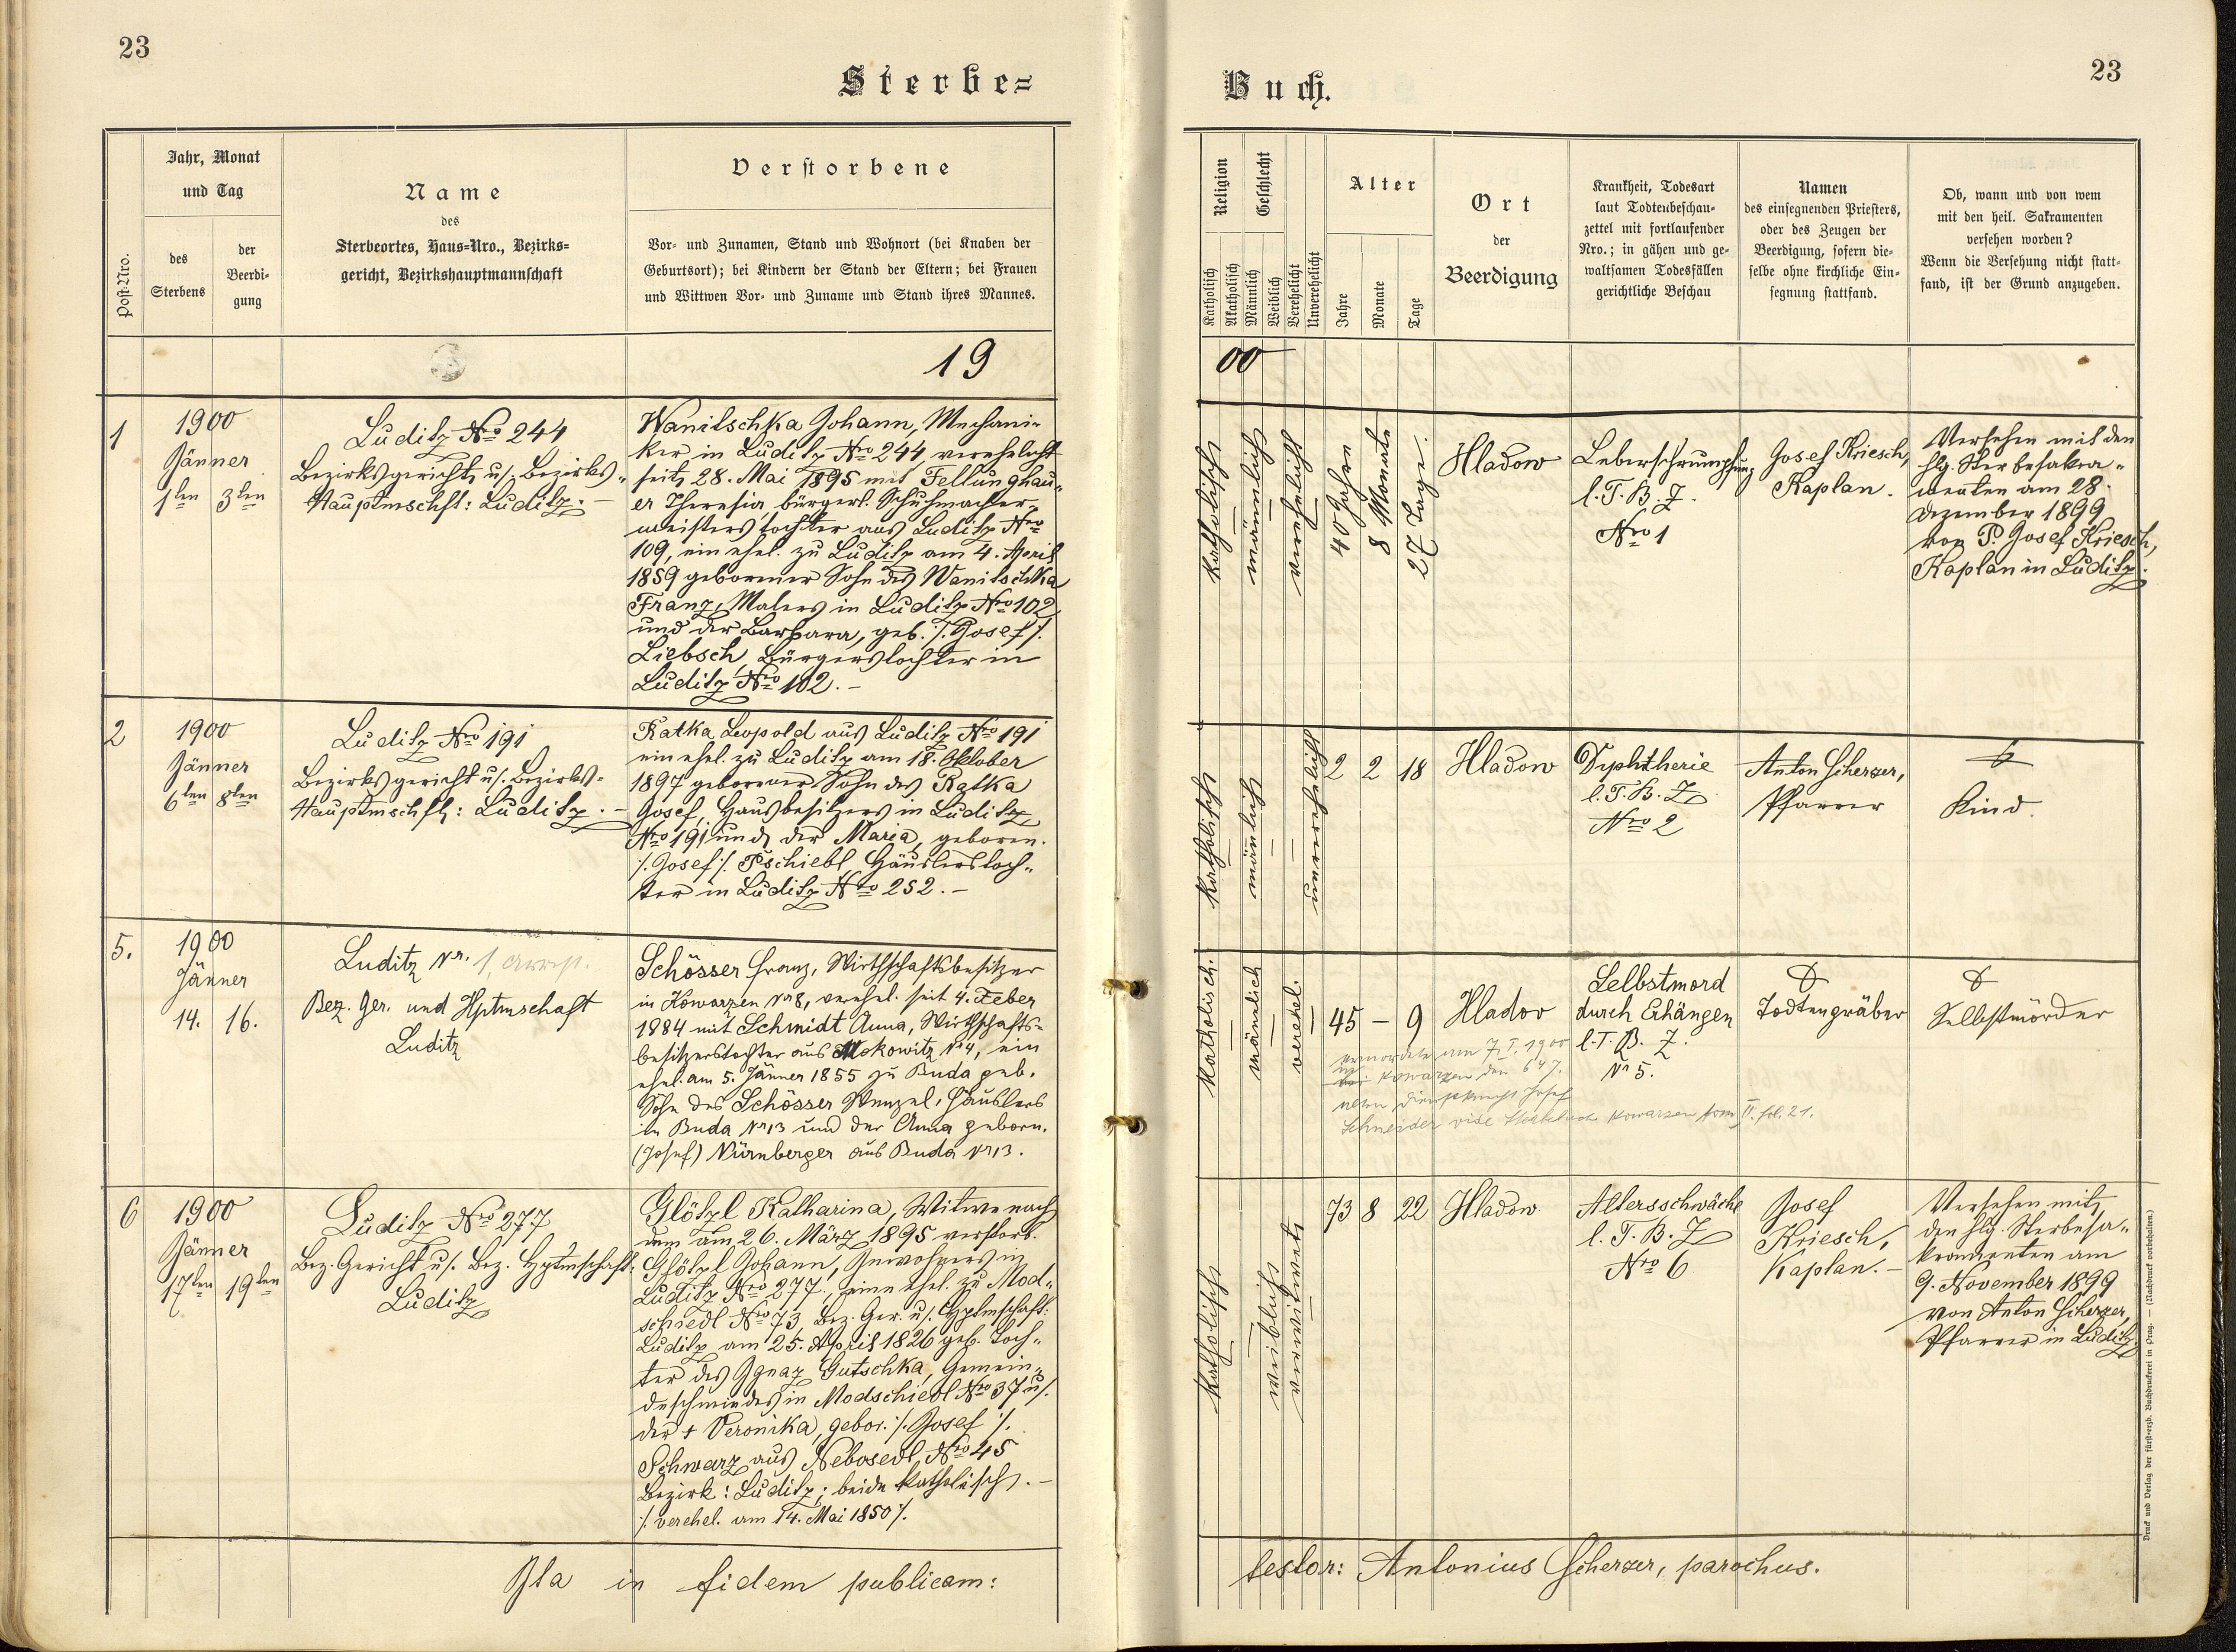 23
Sterbe=
Jahr, Monat
und Tag
Post-Nro.
des
Sterbens
der
Beerdi-
gung
Name
des
Sterbeortes, Haus-Nro., Bezirks-
gericht, Bezirkshauptmannschaft
Verstorbene
Vor- und Zunamen, Stand und Wohnort (bei Knaben der
Geburtsort); bei Kindern der Stand der Eltern; bei Frauen
und Wittwen Vor- und Zuname und Stand ihres Mannes.
19
1
1900
Jänner
1ten 3ten
Luditz Nro 244
Bezirksgericht u/. Bezirks-
Hauptmschft: Luditz. -
Wanitschka Johann, Mechani-
ker in Luditz Nro 244 verehelicht
seit 28. Mai 1895 mit Fellunghau-
er Theresia, bürgerl. Schuhmacher-
meisterstochter aus Luditz Nro
109, ein ehel. zu Luditz am 4. April
1859 geborener Sohn des Wanitschka
Franz, Malers in Luditz Nro 102
und der Barbara, geb. /. Josef /.
Liebsch, Bürgerstochter in
Luditz Nro 102. -
2
1900
Jänner
6ten 8ten
Luditz Nro 191
Bezirksgericht u/. Bezirks-
Hauptmschft: Luditz. -
Ratka Leopold aus Luditz Nro 191
ein ehel. zu Luditz am 18. Oktober
1897 geborener Sohn des Ratka
Josef, Hausbesitzers in Luditz
Nro 191 und der Maria, geboren.
/. Josef /. Pschiebl Häuslerstoch-
ter in Luditz Nro 252. -
5.
1900
Jänner
14. 16.
Luditz Nr. 1
Bez. Ger. und Hptmschaft
Luditz
Schösser Franz, Wirthschaftsbesitzer
in Kowarzen Nr 8, verehel. seit 4. Feber
1884 mit Schmidt Anna, Wirthschafts-
besitzerstochter aus Mokowitz Nr 4, ein
ehel. am 5. Jänner 1855 zu Buda geb.
Sohn des Schösser Wenzel, Häuslers
in Buda Nr 13 und der Anna geborn.
(Josef) Nürnberger aus Buda Nr 13.
6
1900
Jänner
17ten 19ten
Luditz Nro 277
Bez. Gericht u/. Bez. Hptmschaft:
Luditz
Glötzl Katharina, Witwe nach
dem am 26. März 1895 verstorb.
Glötzl Johann, Inwohners in
Luditz Nro 277, eine ehel. zu Mod-
schiedl Nro 73, Bez. Ger. u/. Hptmschaft:
Luditz am 25. April 1826 geb. Toch-
ter des Ignaz Gutschka, Gemein-
deschmiedes in Modschiedl Nro 37 u/.
der + Veronika, gebor. /. Josef /.
Schwarz aus Nebosedl Nro 45
Bezirk: Luditz; beide katholisch. -
/. verehel. am 14. Mai 1850 /.
Ita in fidem publicam:
Buch.
23
Religion
Geschlecht
Katholisch
Akatholisch
Männlich
Weiblich
Verehelicht
Unverehelicht
Alter
Jahre
Monate
Tage
Ort
der
Beerdigung
Krankheit, Todesart
laut Todtenbeschau-
zettel mit fortlaufender
Nro.; in gähen und ge-
waltsamen Todesfällen
gerichtliche Beschau
Namen
des einsegnenden Priesters,
oder des Zeugen der
Beerdigung, sofern die-
selbe ohne kirchliche Ein-
segnung stattfand.
Ob, wann und von wem
mit den heil. Sakramenten
versehen worden?
Wenn die Versehung nicht statt-
fand, ist der Grund anzugeben.
00
katholisch
männlich
verehelicht
40 Jahre
8 Monate
27 Tage.
Hladow
Leberschrumpfung
l. T. B. Z.
Nro 1
Josef Kriesch,
Kaplan.
Versehen mit den
hlg. Sterbesakra-
menten am 28.
Dezember 1899
von P. Josef Kriesch,
Kaplan in Luditz.
katholisch
männlich
unverehelicht
2 2 18
Hladow
Dyphtherie
l. T. B. Z
Nro 2
Anton Scherzer,
Pfarrer
Kind.
katholisch.
männlich
verehel.
45 - 9
Hladov
Selbstmord
durch Erhängen
l. T. B. Z.
Nr 5.
Todtengräber
Selbstmörder
ermordete am 7. I. 1900
in Kowarzen den 64 j.
alten Josef
Schneider vide Sterbebuch Kowarzen tom II. fol. 21.
katholisch
weiblich
verwitwet
73 8 22
Hladow
Altersschwäche
l. T. B. Z
Nro 6
Josef
Kriesch,
Kaplan. -
Versehen mit
den hlg. Sterbesa-
kramenten am
9. November 1899
von Anton Scherzer,
Pfarrer in Luditz
testor: Antonius Scherzer, parochus.
Druck und Verlag der fürsterzb. Buchdruckerei in Prag. — (Nachdruck vorbehalten.)